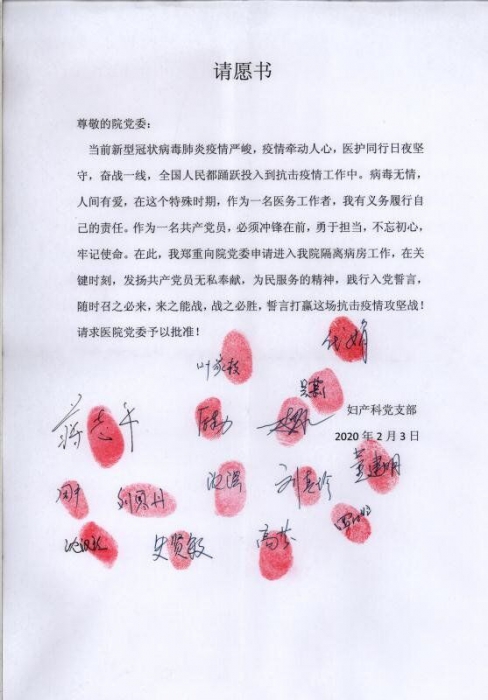 请愿书
尊敬的院党委：
当前新型冠状病毒肺炎疫情严峻，疫情牵动人心，医护同行日夜坚
守，奋战一线，全国人民都踊跃投入到抗击疫情工作中。病毒无情，
人间有爱，在这个特殊时期，作为一名医务工作者，我有义务履行自
己的责任。作为一名共产党员，必须冲锋在前，勇于担当，不忘初心，
牢记使命。在此，我郑重向院党委申请进入我院隔离病房工作，在关
键时刻，发扬共产党员无私奉献，为民服务的精神，践行入党誓言，
随时召之必来，来之能战，战之必胜，誓言打赢这场抗击疫情攻坚战！
请求医院党委予以批准！
蒋志千
妇产科党支部
2020 年 2 月 3 日
董建明
史贤敏
高芬